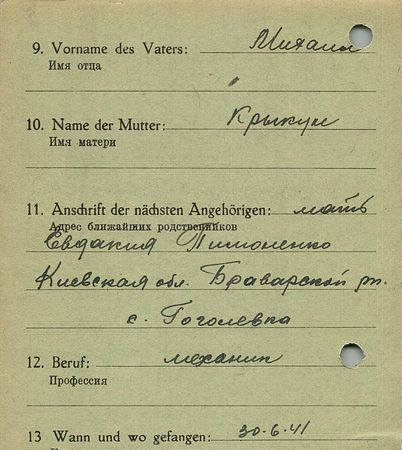 9. Vorname des Vaters: Михаил
Имя отца
10. Name der Mutter: Крыкун
Имя матери
11. Anschrift der nächsten Angehörigen: мать
Адрес ближайших родственников
Евдакия Тимоненко
Киевская обл. Браварской рн.
с. Гоголевка
12. Beruf: механик
Профессия
13 Wann und wo gefangen: 30.6.41